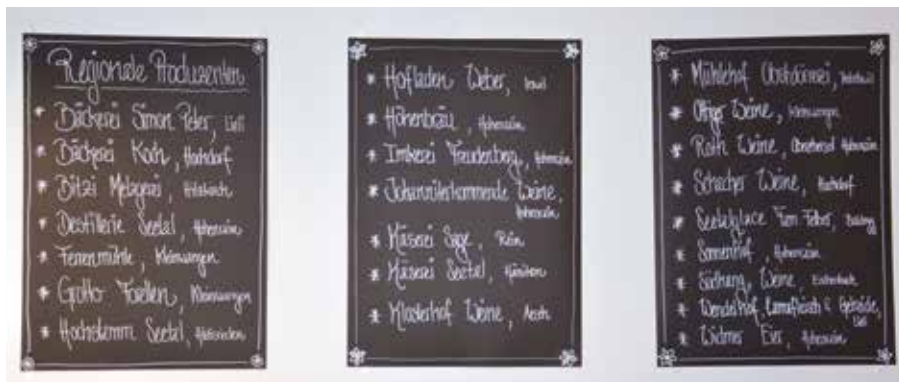 Regionale Produzenten
* Bäckerei Simon Peter, Lieli
* Bäckerei Koch, Hochdorf
* Bitzi Metzgerei, Hitzkirch
* Destillerie Seetal, Hohenrain
* Ferrenmühle, Kleinwangen
* Grotto Forellen, Kleinwangen
* Hochstamm Seetal,
* Hofladen Weber, Inwil
* Höhenbräu, Hohenrain
* Imkerei Freudenberg, Hohenrain
* Johanniterkommende Weine,
Hohenrain
* Käserei Sage, Rain
* Käserei Seetal, Hämikon
* Klosterhof Weine, Aesch
* Mühlehof Obstbrennerei,
* Ottiger Weine, Kleinwangen
* Roth Weine, Oberebersol Hohenrain
* Schacher Weine, Hochdorf
* Seetalglace Fam Felber,
* Sonnenhof, Hohenrain
* Südhang, Weine, Eschenbach
* Wendelhof, Lamafleisch & Getreide,
Lieli
* Widmer Eier, Hohenrain